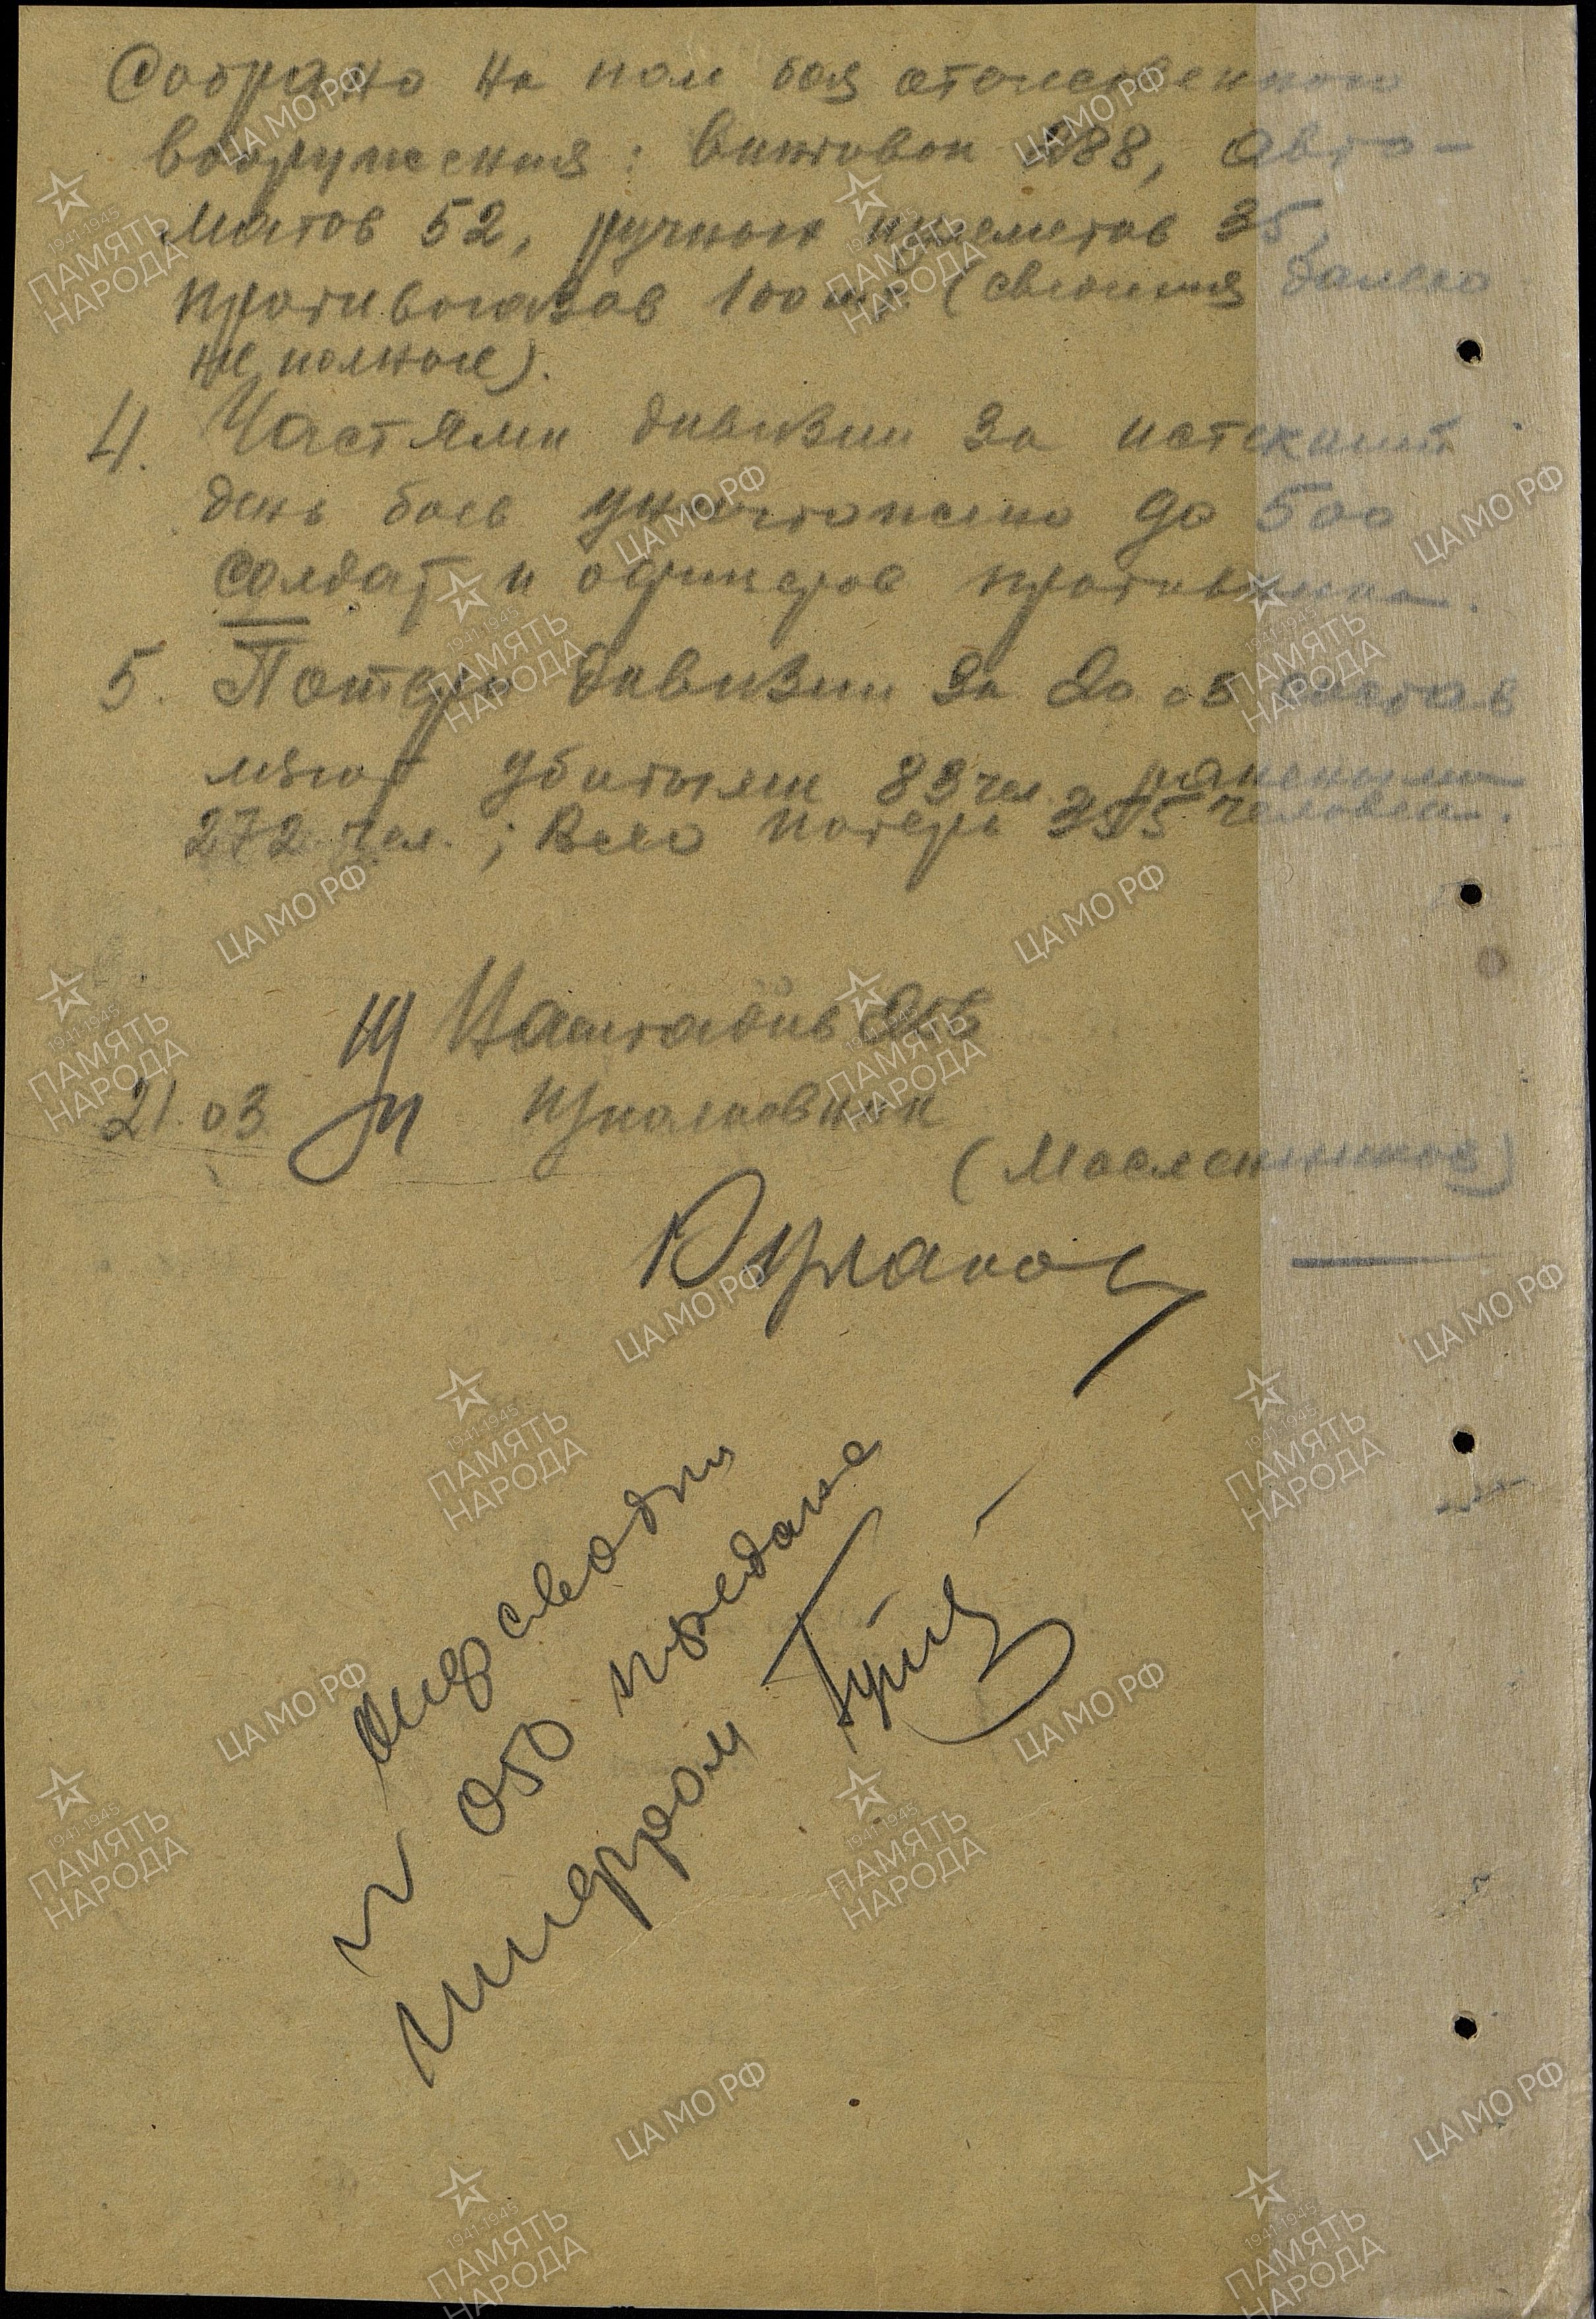 Собрано на поле боя отечественного
вооружения: винтовок 288, авто-
матов 52, ручных пулеметов 35,
противогазов 100 шт. (сведения далеко
не полные).
4. Частями дивизии за истекший
день боев уничтожено до 500
солдат и офицеров противника.
5. Потери дивизии за 20.03 состав
ляют убитыми 83 чел. ранеными
272 чел.; Всего потерь 355 человек.
Наштадив
21.03
п/полковник
(Масленников)
опер сводки
и
шифром
ЦА МО РФ
1941-1945
ПАМЯТЬ
НАРОДА